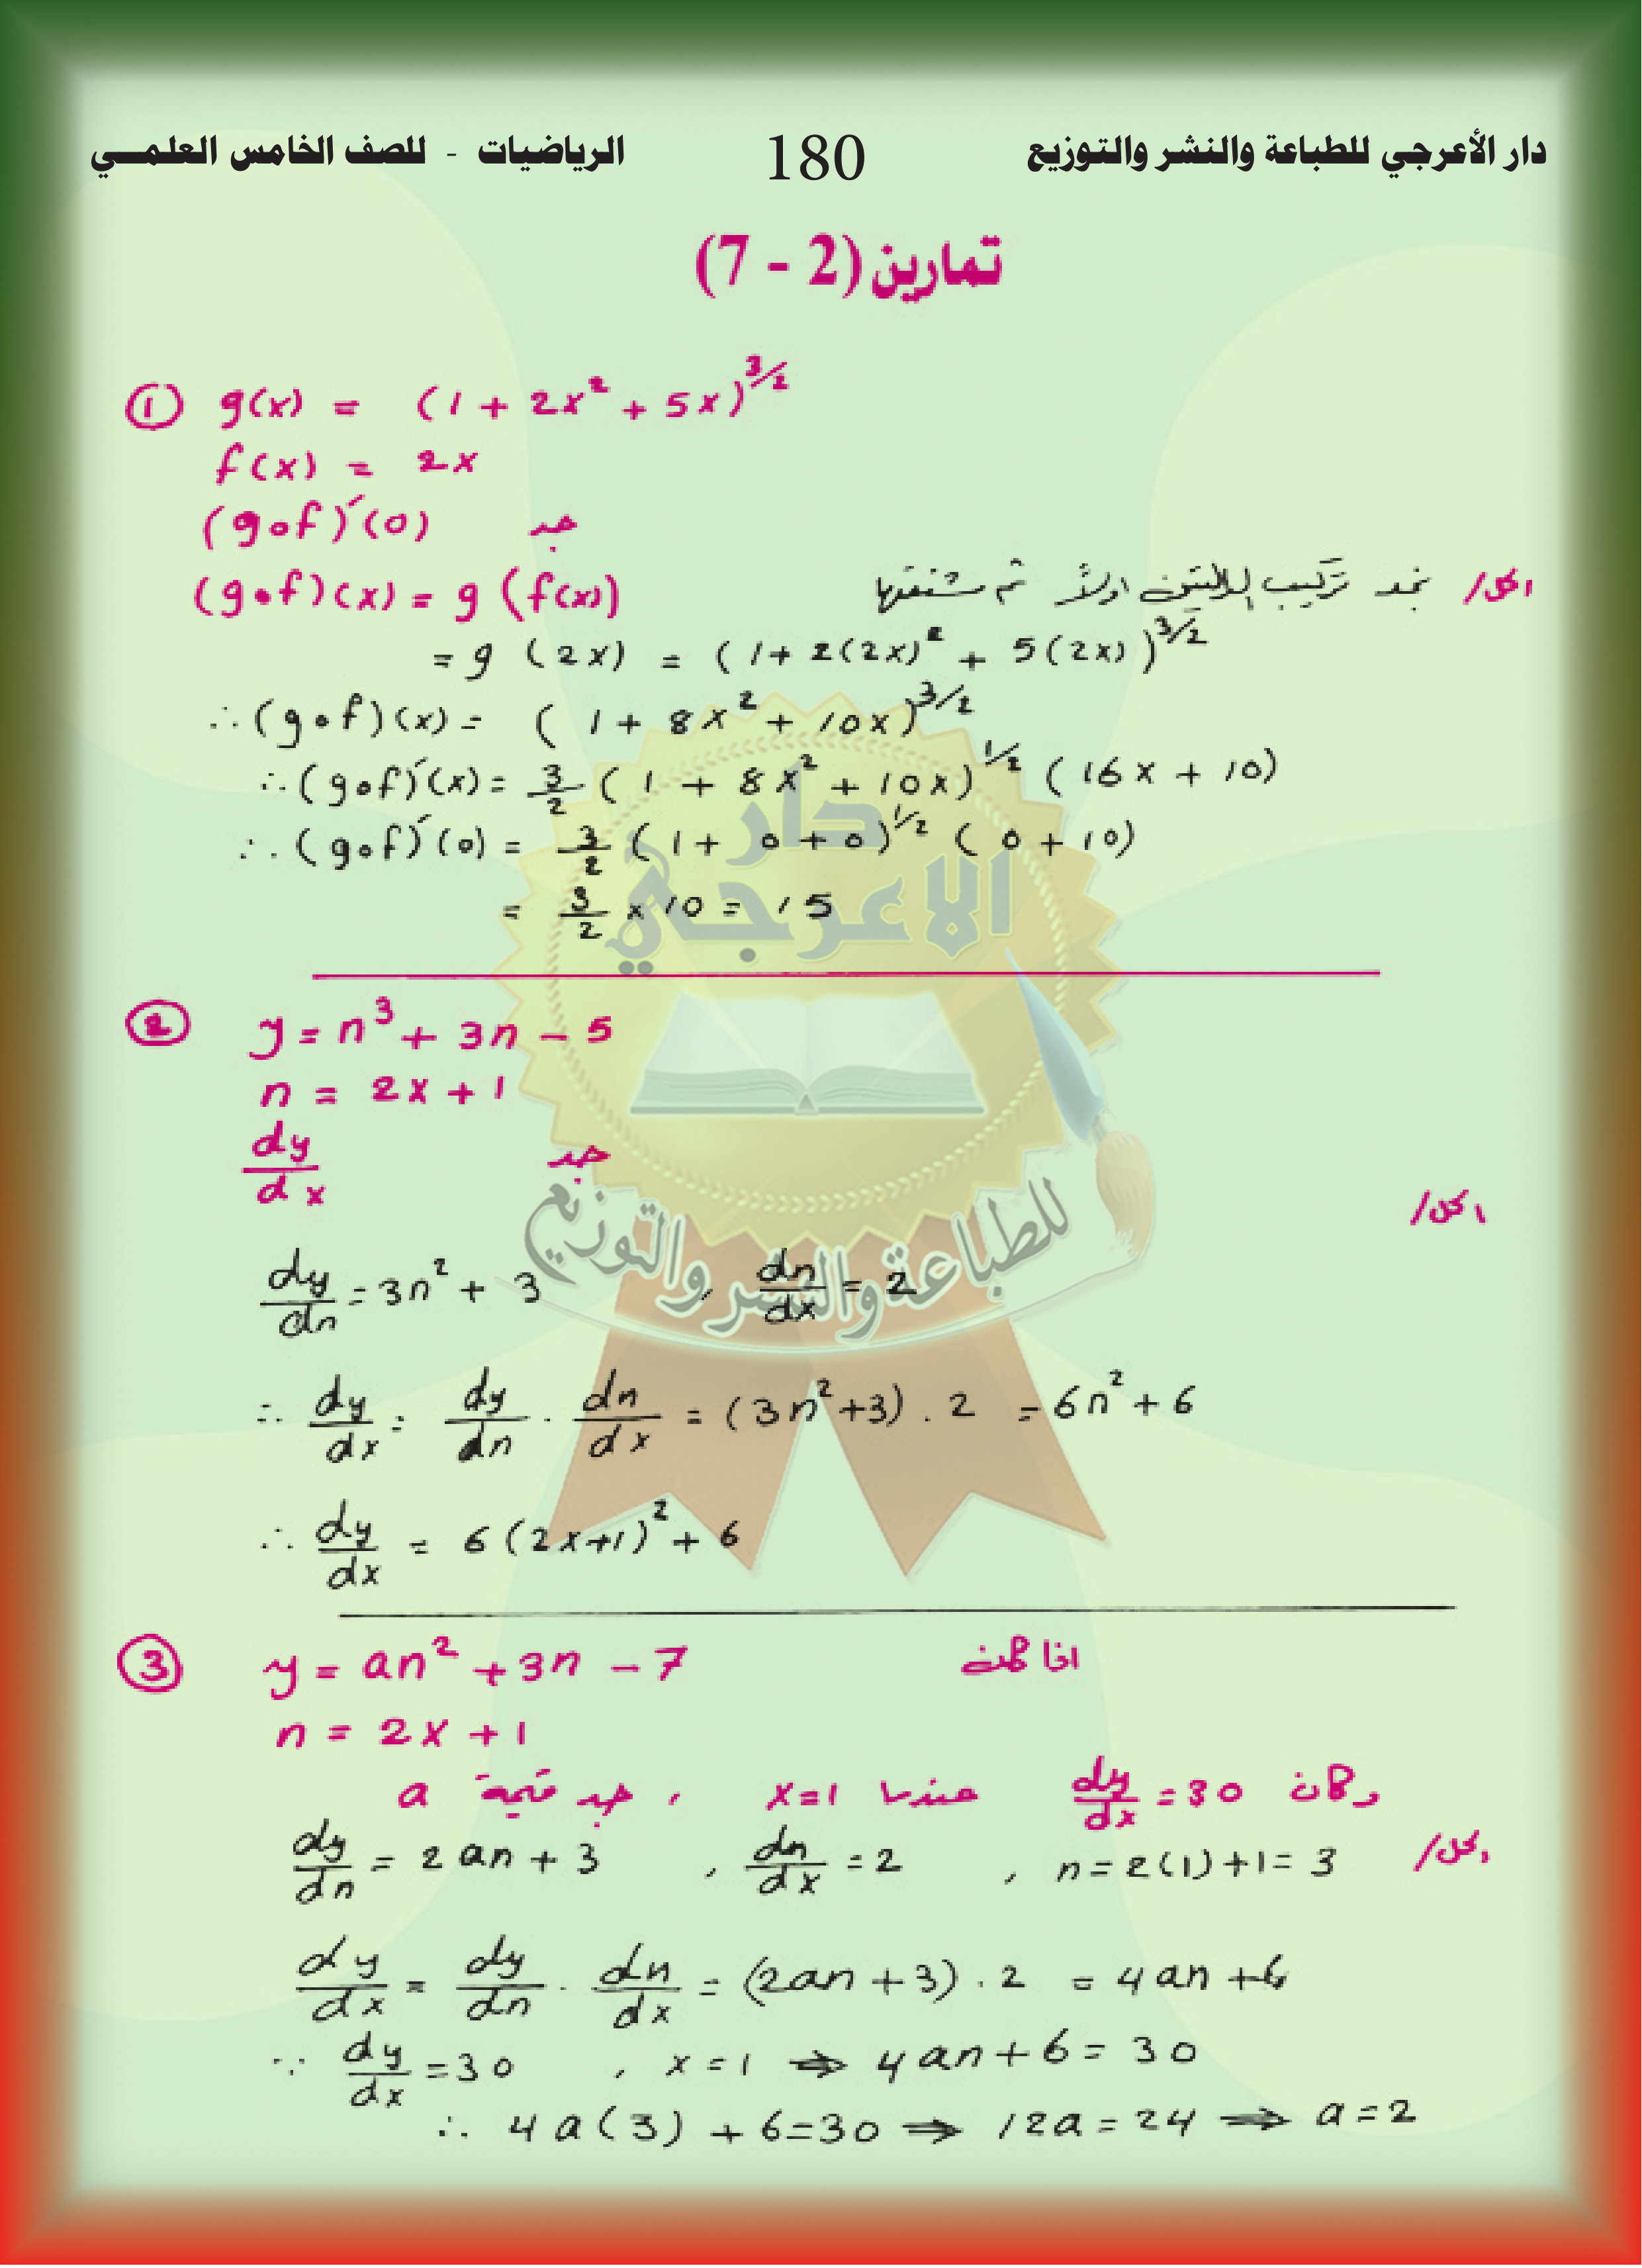 دار الأعرجي للطباعة والنشر والتوزيع 180 الرياضيات - للصف الخامس العلمـــي
تمارين (2 - 7)
① g(x) = (1 + 2x² + 5x)^3/2
f(x) = 2x
(g∘f)′(0) جد
(g∘f)(x) = g (f(x)) الحل/ نجد تركيب الدالتين اولاً ثم مشتقتها
= g (2x) = (1 + 2(2x)² + 5(2x))^3/2
∴ (g∘f)(x) = (1 + 8x² + 10x)^3/2
∴ (g∘f)′(x) = 3/2 (1 + 8x² + 10x)^1/2 (16x + 10)
∴ (g∘f)′(0) = 3/2 (1 + 0 + 0)^1/2 (0 + 10)
= 3/2 × 10 = 15
② y = n³ + 3n - 5
n = 2x + 1
dy/dx جد
الحل/
dy/dn = 3n² + 3 , dn/dx = 2
∴ dy/dx = dy/dn · dn/dx = (3n² + 3) . 2 = 6n² + 6
∴ dy/dx = 6(2x+1)² + 6
③ y = an² + 3n - 7 اذا كانت
n = 2x + 1
وكان dy/dx = 30 عندما x=1 , جد قيمة a
الحل/
dy/dn = 2an + 3 , dn/dx = 2 , n = 2(1)+1 = 3
dy/dx = dy/dn · dn/dx = (2an + 3) . 2 = 4an + 6
∵ dy/dx = 30 , x = 1 ⇒ 4an + 6 = 30
∴ 4a(3) + 6 = 30 ⇒ 12a = 24 ⇒ a = 2
دار
الاعرجي
للطباعة والنشر والتوزيع